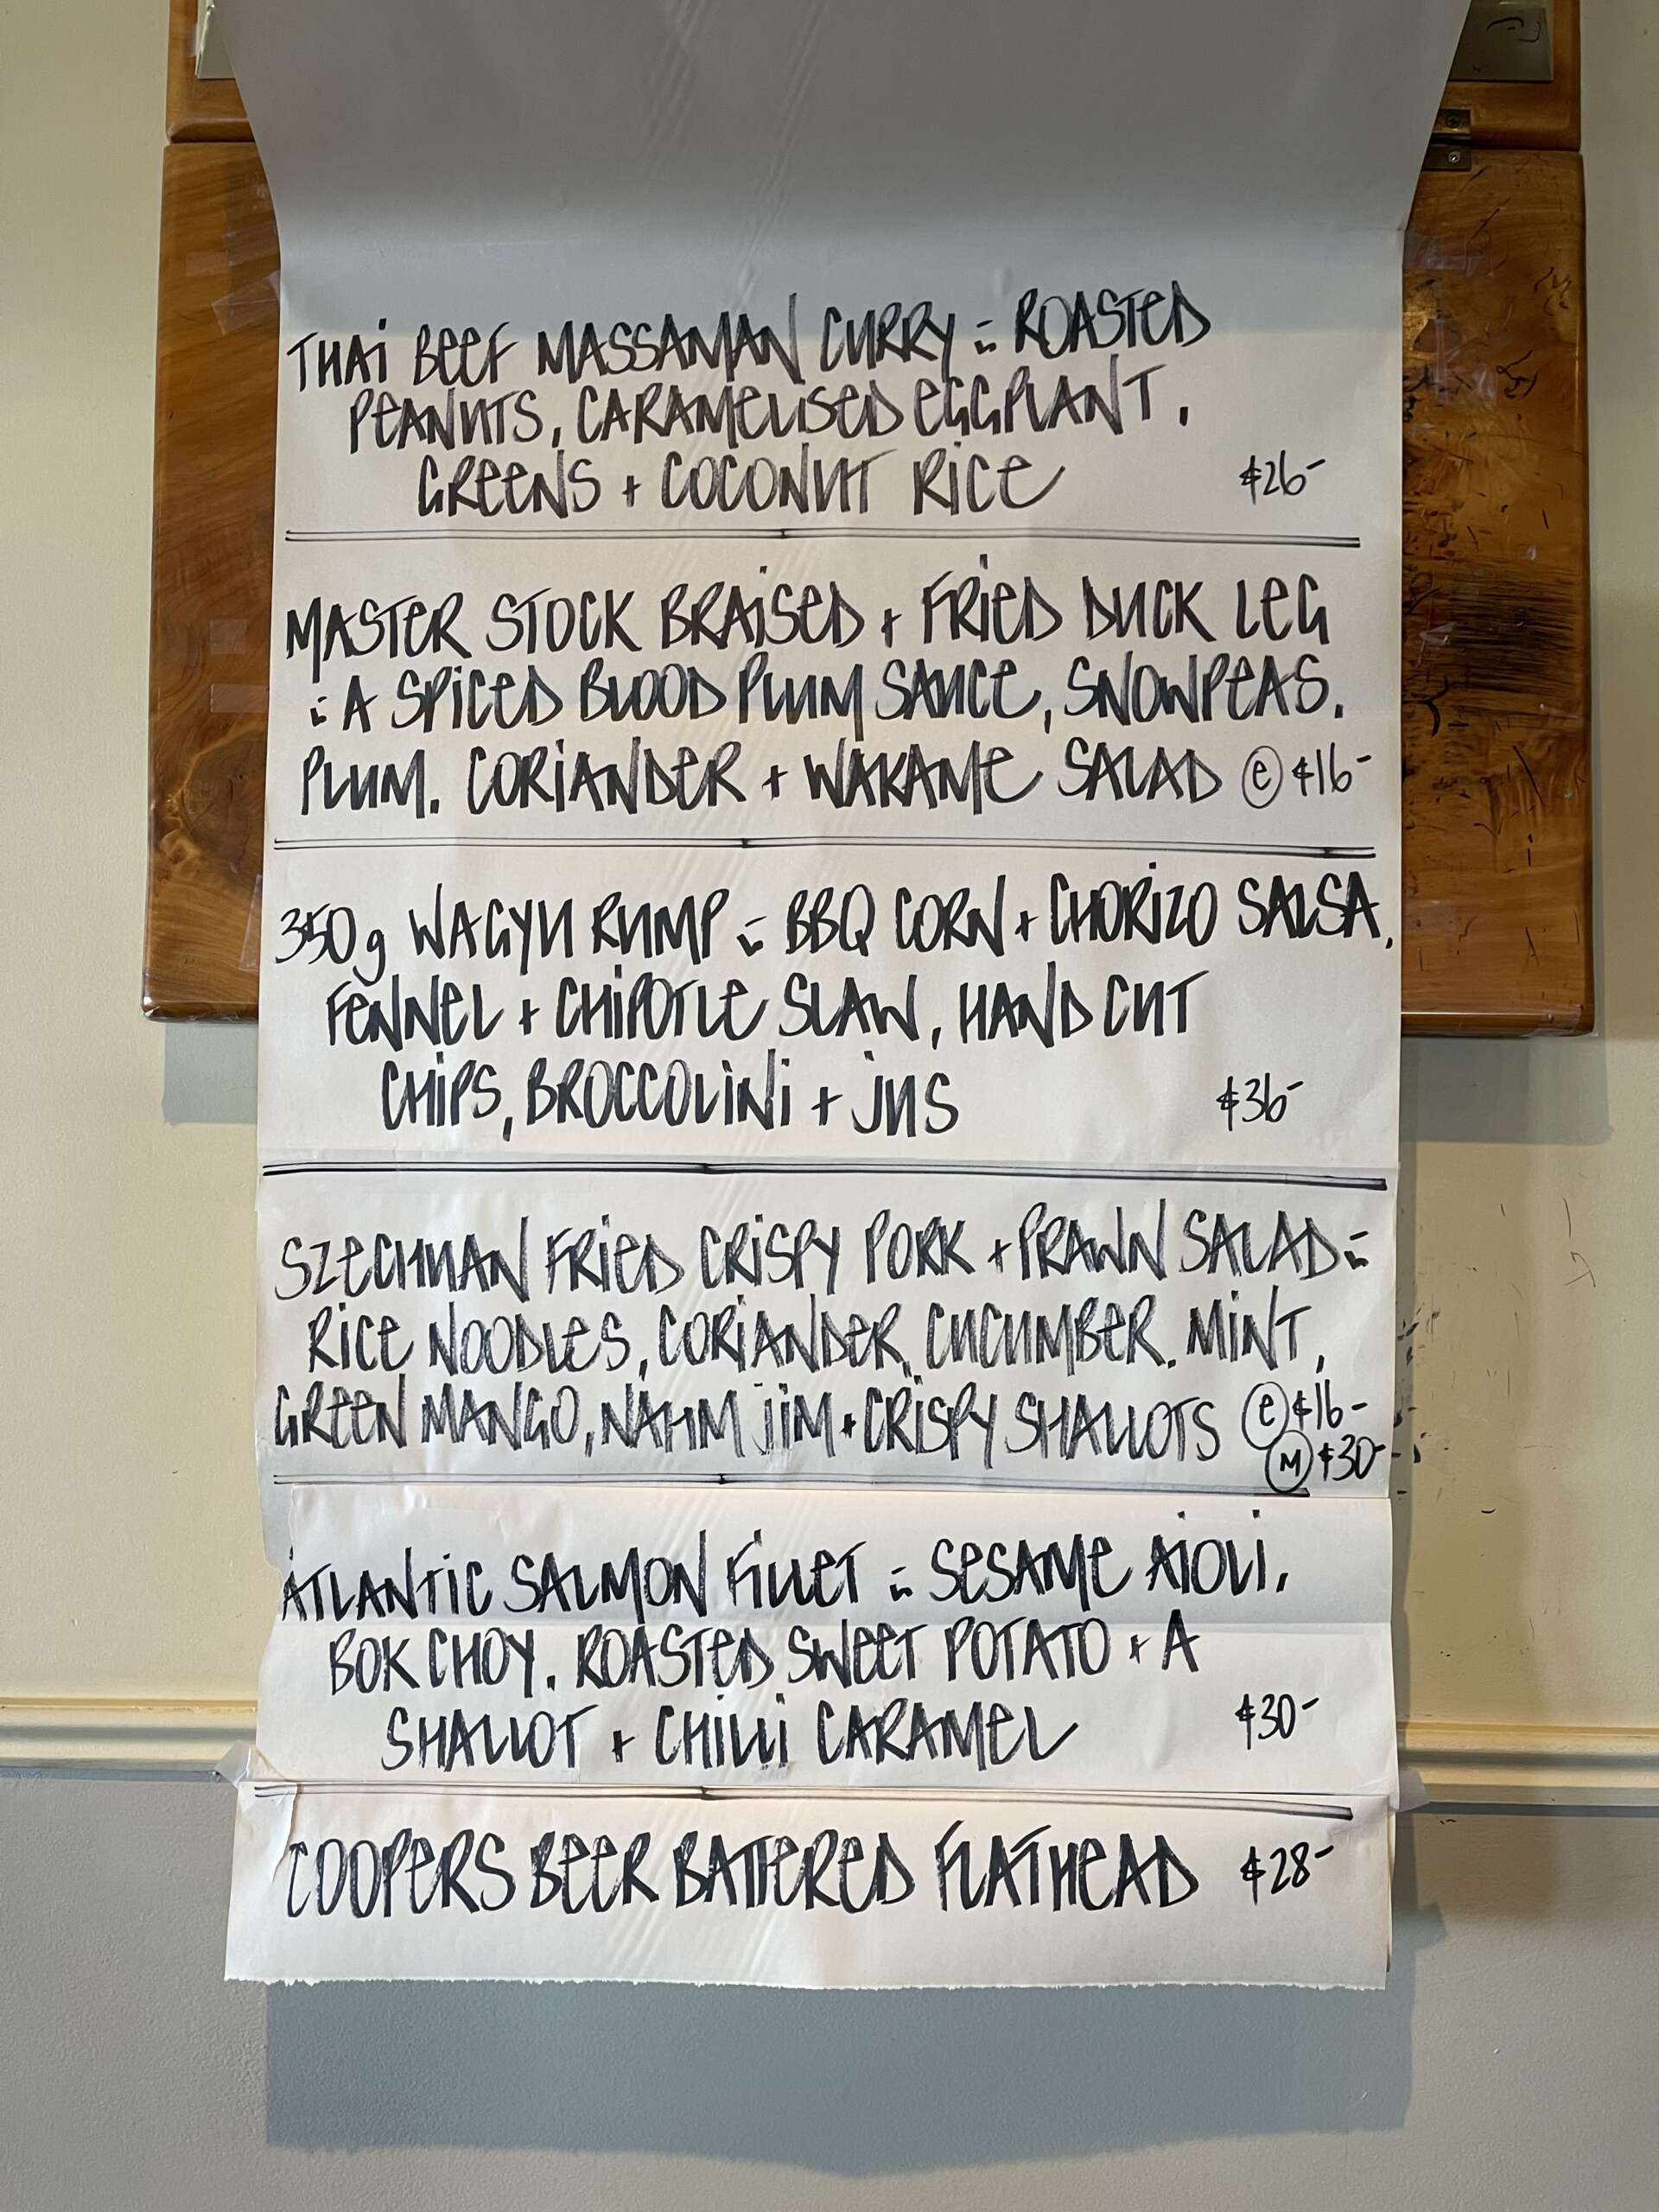 THAI BEEF MASSAMAN CURRY :- ROASTED
PEANUTS, CARAMELISED EGGPLANT,
GREENS + COCONUT RICE $26-
MASTER STOCK BRAISED + FRIED DUCK LEG
:- A SPICED BLOOD PLUM SAUCE, SNOWPEAS,
PLUM, CORIANDER + WAKAME SALAD (e) $16-
350g WAGYU RUMP :- BBQ CORN + CHORIZO SALSA,
FENNEL + CHIPOTLE SLAW, HAND CUT
CHIPS, BROCCOLINI + JUS $36-
SZECHUAN FRIED CRISPY PORK + PRAWN SALAD :-
RICE NOODLES, CORIANDER, CUCUMBER, MINT,
GREEN MANGO, NAHM JIM + CRISPY SHALLOTS (e) $16-
(M) $30-
ATLANTIC SALMON FILLET :- SESAME AIOLI,
BOK CHOY, ROASTED SWEET POTATO + A
SHALLOT + CHILLI CARAMEL $30-
COOPERS BEER BATTERED FLATHEAD $28-